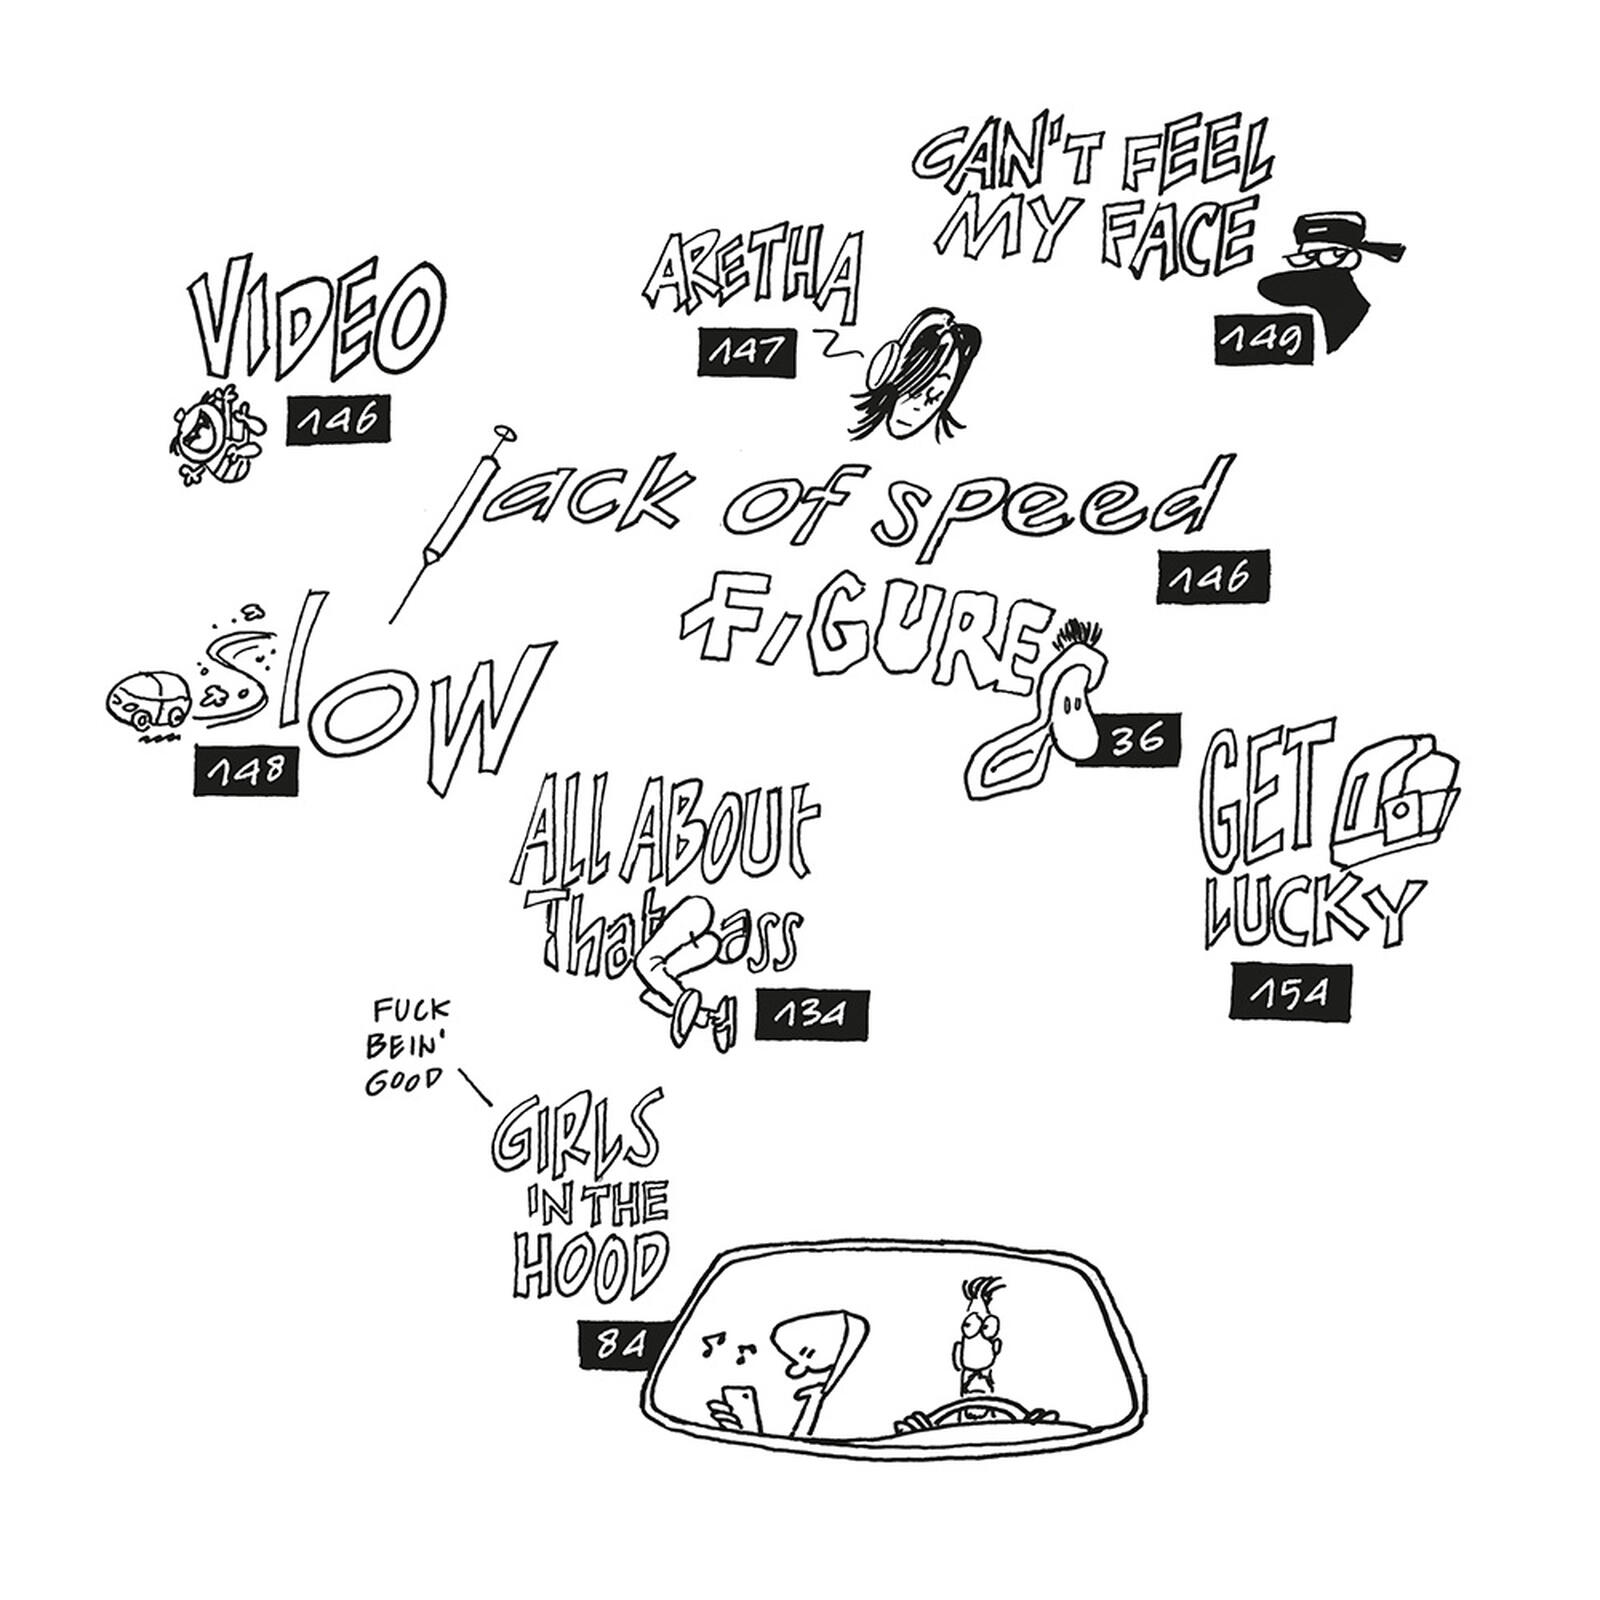 CAN'T FEEL
MY FACE
149
ARETHA
147
VIDEO
146
jack of speed
146
FIGURE
36
slow
148
GET
LUCKY
154
ALL ABOUT
That Bass
134
FUCK
BEIN'
GOOD
GIRLS
IN THE
HOOD
84